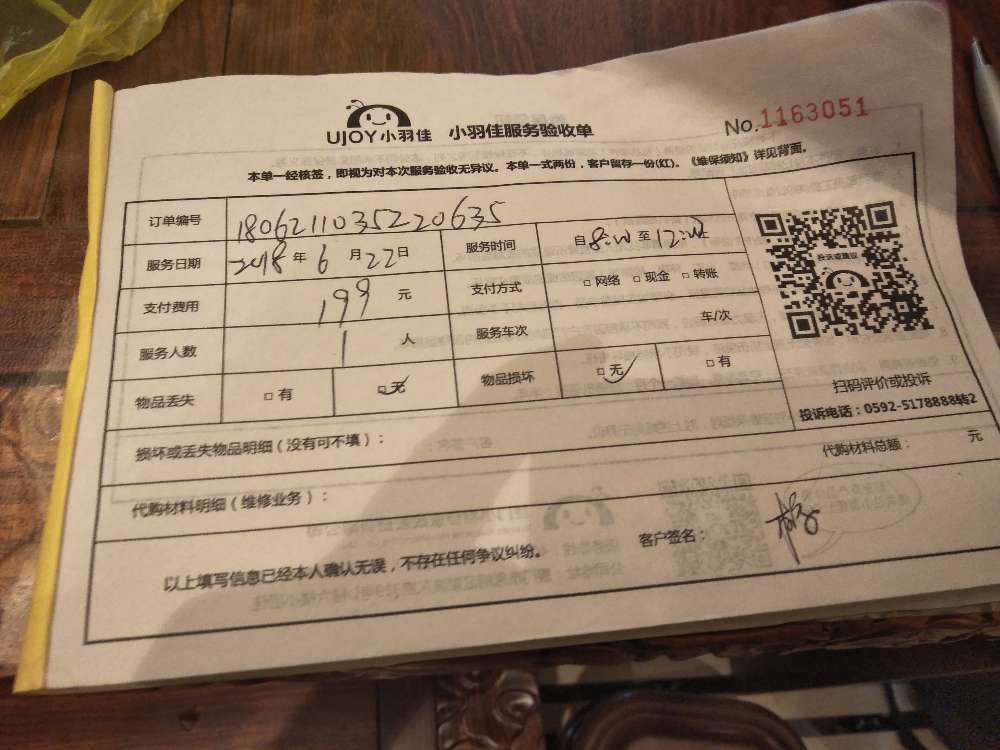 UJOY小羽佳 小羽佳服务验收单
No.1163051
本单一经核签，即视为对本次服务验收无异议。本单一式两份，客户留存一份(红)。《维保须知》详见背面。
订单编号 1806211035220635
服务日期 2018年6月22日 服务时间 自8:00至12:00
支付费用 199元 支付方式 □网络 □现金 □转账
服务人数 1人 服务车次 车/次
物品丢失 □有 □无 物品损坏 □无 □有
投诉或建议
扫码评价或投诉
投诉电话：0592-5178888转2
损坏或丢失物品明细（没有可不填）：
代购材料明细（维修业务）： 代购材料总额： 元
以上填写信息已经本人确认无误，不存在任何争议纠纷。 客户签名：